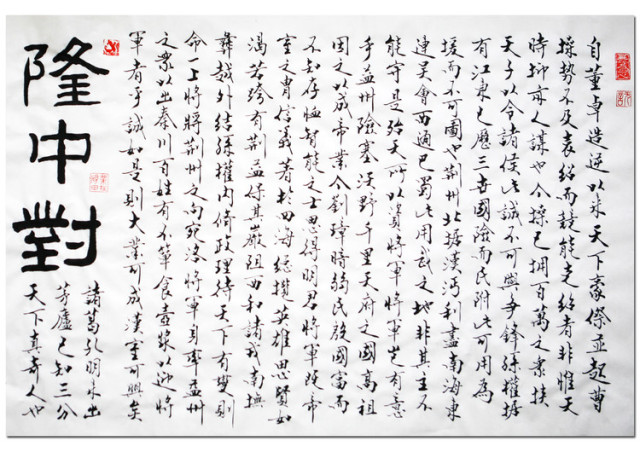 自董卓造逆以來天下豪傑並起曹
操勢不及袁紹而競能克紹者非惟天
時抑亦人謀也今操已擁百萬之衆挾
天子以令諸侯此誠不可與爭鋒孫權據
有江東已歷三世國險而民附此可用為
援而不可圖也荊州北據漢沔利盡南海東
連吳會西通巴蜀此用武之地非其主不
能守是殆天所以資將軍將軍豈有意
乎益州險塞沃野千里天府之國高祖
因之以成帝業今劉璋暗弱民殷國富而
不知存恤智能之士思得明君將軍既帝
室之胄信義著於四海總攬英雄思賢如
渴若跨有荊益保其巖阻西和諸戎南撫
彝越外結孫權內修政理待天下有變則
命一上將將荊州之向宛洛將軍身率益州
之衆以出秦川百姓有不簞食壺漿以迎將
軍者乎誠如是則大業可成漢室可興矣
隆中對
諸葛孔明未出
茅廬已知三分
天下真奇人也